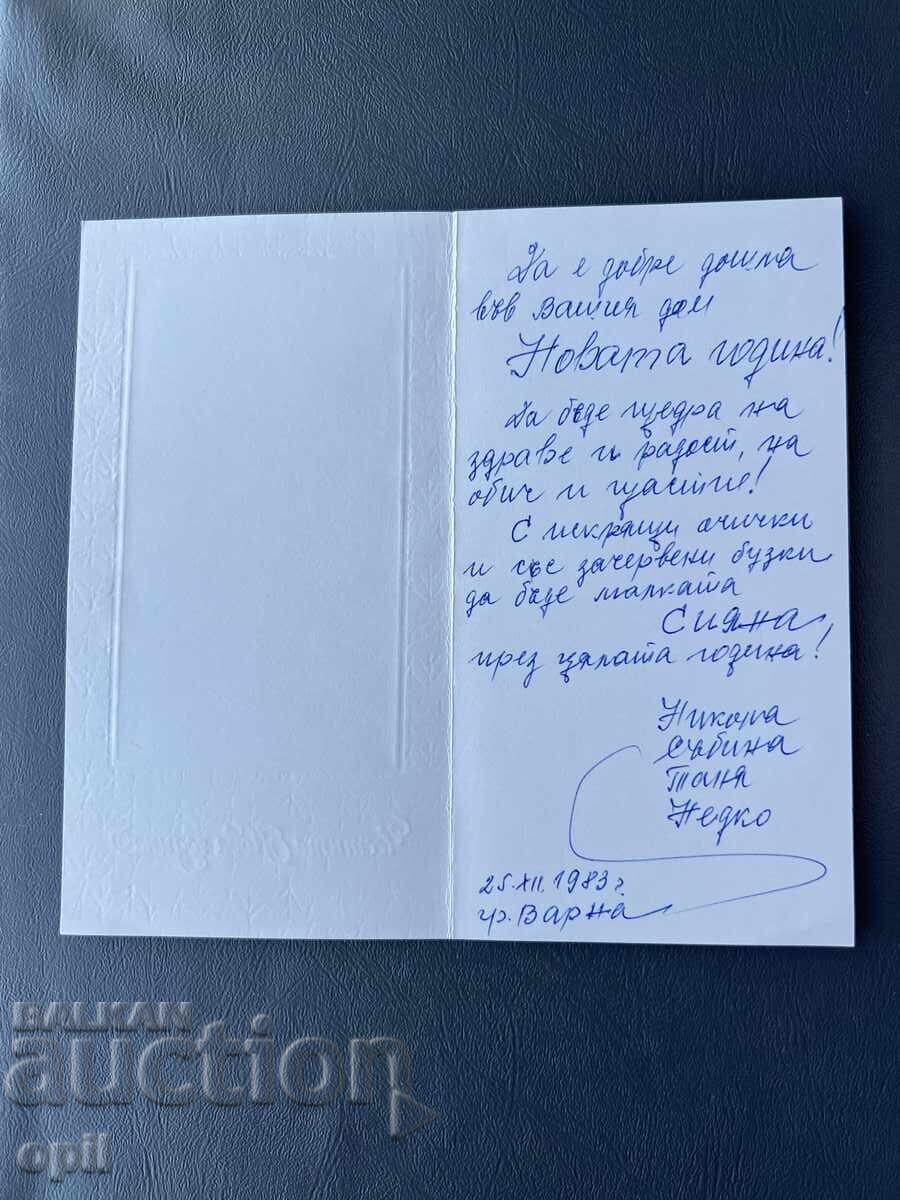 Да е добре дошла
във Вашия дом
Новата година!
Да бъде щедра на
здраве и радост, на
обич и щастие!
С искрящи очички
и със зачервени бузки
да бъде малката
Сияна
през цялата година!
Никола
Събина
Таня
Недко
25.XII.1983 г.
гр. Варна
BALKAN
auction
opil